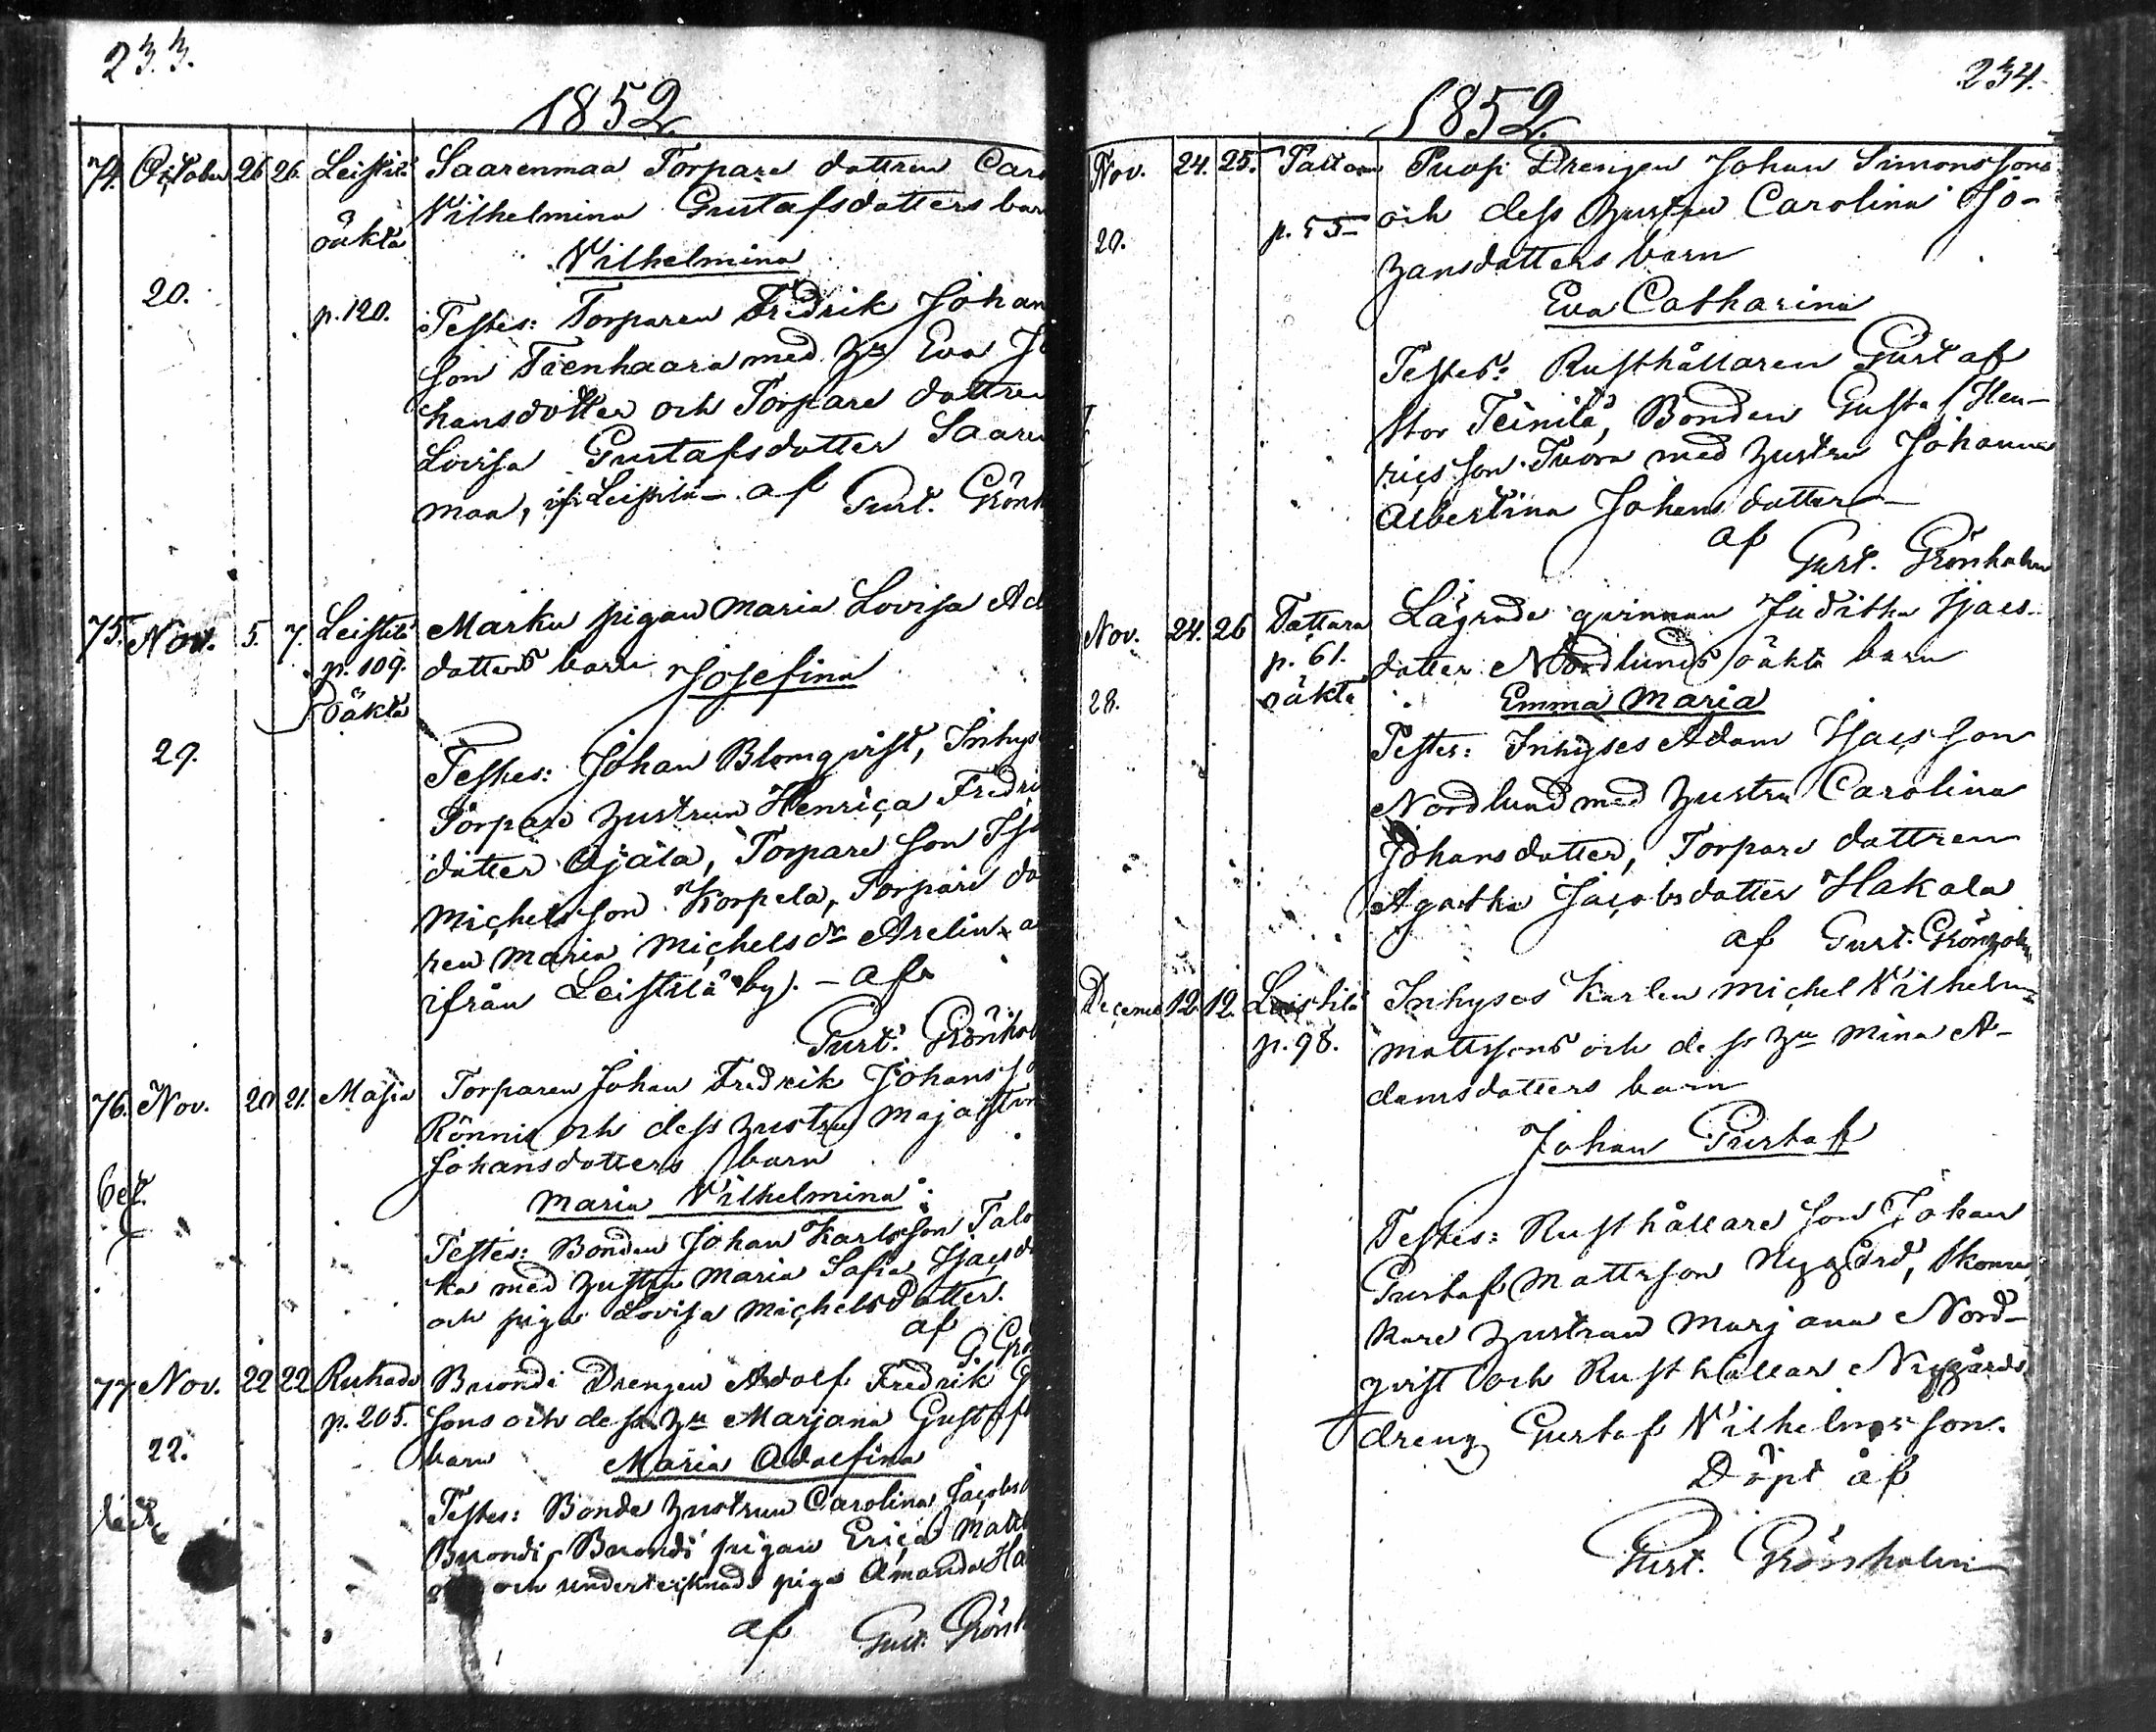 233.
1852
74. October 26 26. Leistilä Saarenmaa Torpare dottren Caro
oäkta Vilhelmina Gustafsdotters barn
Vilhelmina
20. p. 120. Testes: Torparen Fredrik Johan
son Tienhaara med Hu Eva Jo
hansdotter och Torpare dottren
Lovisa Gustafsdotter Saaren
maa, ifr. Leistilä – af Gust. Grönh
75. Nov. 5. 7. Leistilä Marku pigan Maria Lovisa Ad
p. 109. dotters barn Josefina
oäkta
29. Testes: Johan Blomqvist, Inhys
Torpare hustrun Henrica Fredri
dotter Ojala, Torpare son Isa
Michelsson Korpela, Torpare do
ren Maria Michelsdr Arelin a
ifrån Leistilä by. – af
Gust. Grönhol
76. Nov. 20 21. Masia Torparen Johan Fredrik Johansso
Rönni och dess hustru Maja Stin
Johansdotters barn
bet. Maria Vilhelmina
Testes: Bonden Johan Karlsson Talo
ka med hustru Maria Sofia Isacsd
och piga Lovisa Michelsdotter.
af
G. Grö
77 Nov. 22 22 Ruhade Buondi Drengen Adolf Fredrik G
p. 205. sons och dess Hu Marjana Gustafs
22. barn Maria Adolfina
Testes: Bonde hustrun Carolina Jacobsd
Buondi, Buondi pigan Erica Matt
och undertecknads piga Amanda Ha
af Gust. Grönh
234.
1852.
Nov. 24. 25. Tattara Puosi Drengen Johan Simonssons
20. p. 55 och dess hustru Carolina Jo-
hansdotters barn
Eva Catharina
Testes: Rusthållaren Gustaf
Stor Teinilä, Bonden Gustaf Hen-
ricsson Tuora med hustru Johanna
Albertina Johansdotter –
af Gust. Grönholm
Nov. 24. 26 Tattara Lägrade qvinnan Juditha Isacs
p. 61. dotter Nordlunds oäkta barn
28. oäkta Emma Maria
Testes: Inhyses Adam Isacsson
Nordlund med hustru Carolina
Johansdotter, Torpare dottren
Agatha Jacobsdotter Hakala
af Gust. Grönholm
Decemb 12. 12. Leistilä Inhyses Karlen Michel Vilhelm
p. 98. Mattssons och dess Hu Mina A-
damsdotters barn
Johan Gustaf
Testes: Rusthållare son Johan
Gustaf Mattsson Nygård, Skoma
kare hustrun Marjana Nord-
qvist och Rusthållar Nygårds
dreng Gustaf Vilhelmsson.
Döpt af
Gust. Grönholm